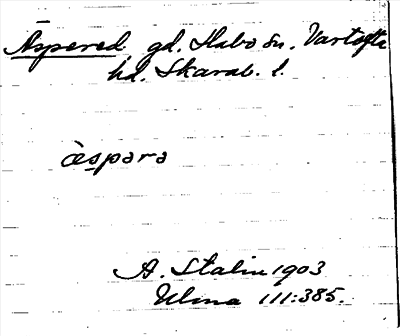 Äspered, gd. Habo sn. Vartofta
hd. Skarab. l.
æspara
A. Stalin 1903
Ulma 111:385.